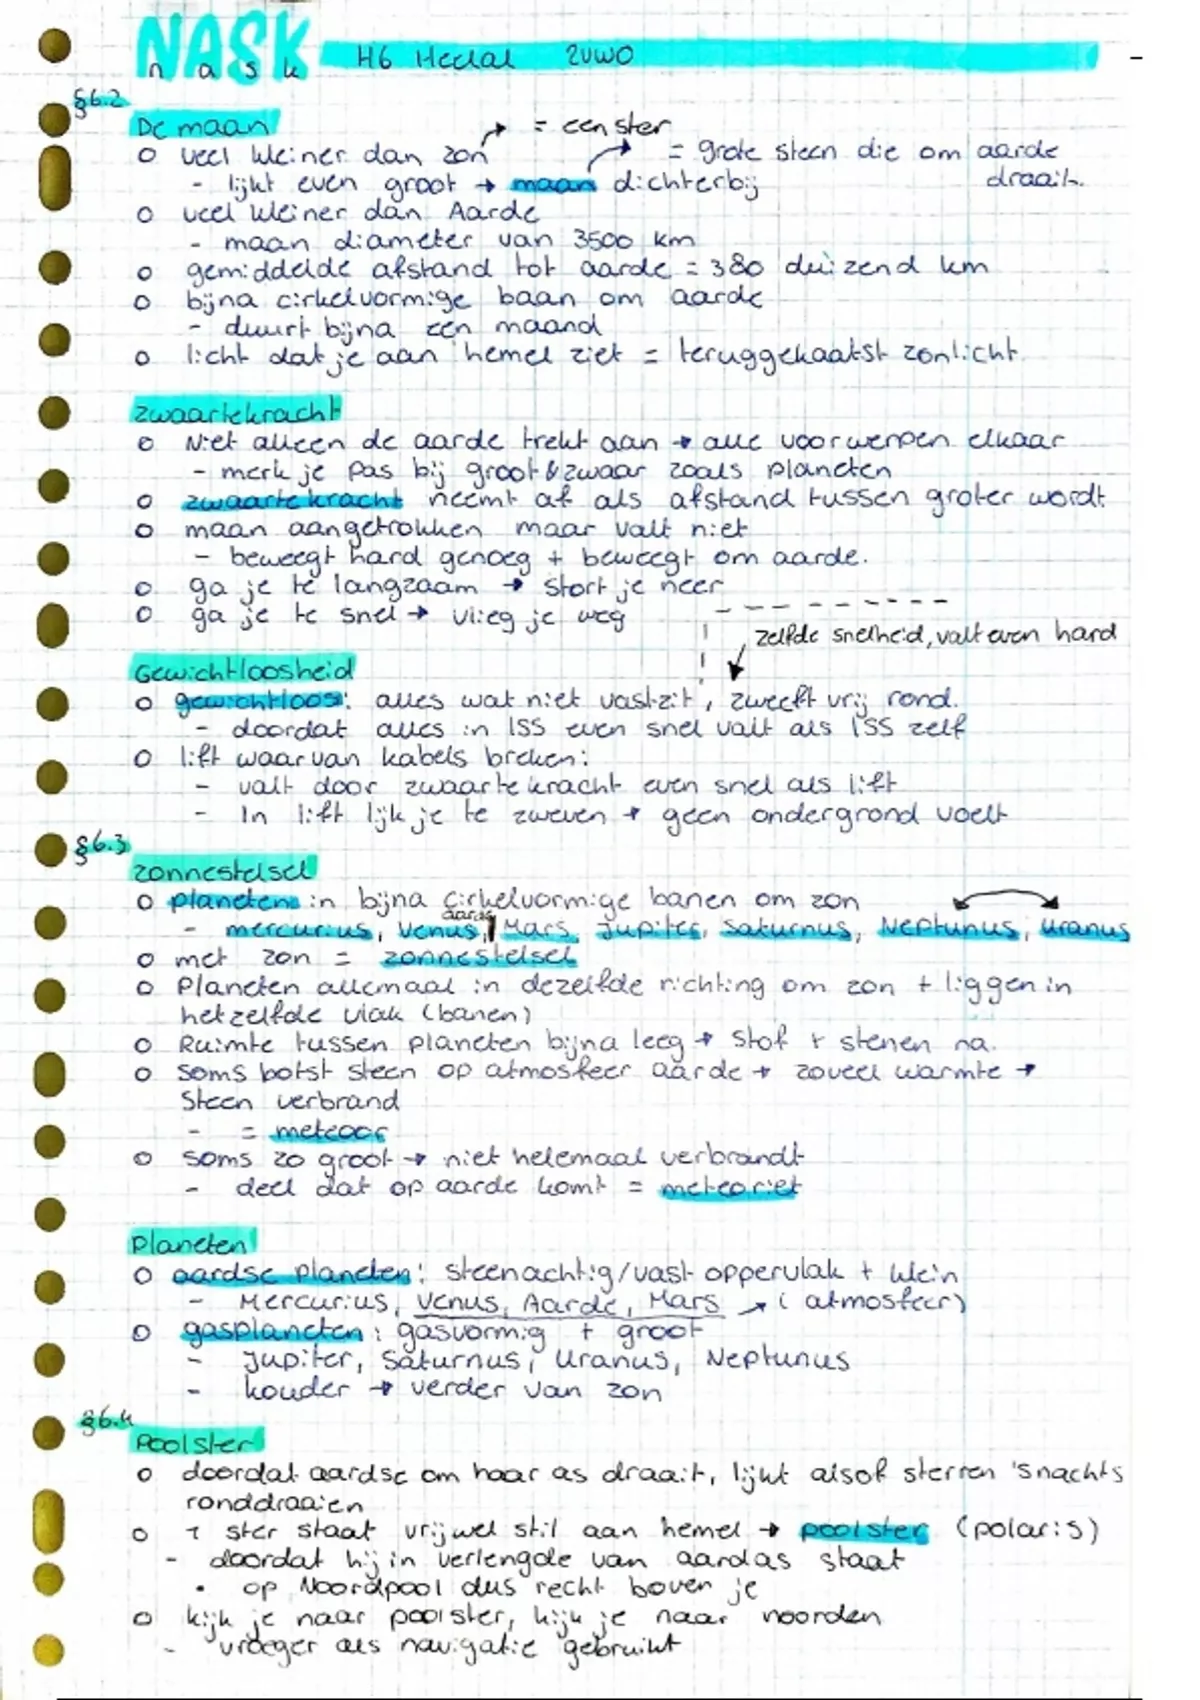 NASK
n a s k H6 Heelal 2vwo
§6.2
De maan
= een ster
o veel kleiner dan zon = grote steen die om aarde draait.
- lijkt even groot → maan dichterbij
o veel kleiner dan Aarde
- maan diameter van 3500 km
o gemiddelde afstand tot aarde = 380 duizend km
o bijna cirkelvormige baan om aarde
- duurt bijna een maand
o licht dat je aan hemel ziet = teruggekaatst zonlicht.
zwaartekracht
o Niet alleen de aarde trekt aan → alle voorwerpen elkaar
- merk je pas bij groot & zwaar zoals planeten
o zwaartekracht neemt af als afstand tussen groter wordt
o maan aangetrokken maar valt niet
- beweegt hard genoeg + beweegt om aarde.
o ga je te langzaam → stort je neer
o ga je te snel → vlieg je weg
zelfde snelheid, valt even hard
Gewichtloosheid
o gewichtloos: alles wat niet vastzit, zweeft vrij rond.
- doordat alles in ISS even snel valt als ISS zelf
o lift waarvan kabels breken:
- valt door zwaartekracht even snel als lift
- In lift lijk je te zweven → geen ondergrond voelt
§6.3
zonnestelsel
o planeten in bijna cirkelvormige banen om zon
aarde
- mercurius, Venus, Mars, Jupiter, Saturnus, Neptunus, Uranus
o met zon = zonnestelsel
o Planeten allemaal in dezelfde richting om zon + liggen in
hetzelfde vlak (banen)
o Ruimte tussen planeten bijna leeg → stof + stenen na.
o soms botst steen op atmosfeer aarde → zoveel warmte →
steen verbrand
- = meteoor
o soms zo groot → niet helemaal verbrandt
- deel dat op aarde komt = meteoriet
planeten
o aardse planeten: steenachtig/vast oppervlak + klein
- Mercurius, Venus, Aarde, Mars → (atmosfeer)
o gasplaneten: gasvormig + groot
- Jupiter, Saturnus, Uranus, Neptunus
- kouder → verder van zon
§6.4
Poolster
o doordat aardse om haar as draait, lijkt alsof sterren 's nachts
ronddraaien
o 1 ster staat vrijwel stil aan hemel → poolster (polaris)
- doordat hij in verlengde van aardas staat
• op Noordpool dus recht boven je
o kijk je naar poolster, kijk je naar noorden
- vroeger als navigatie gebruikt